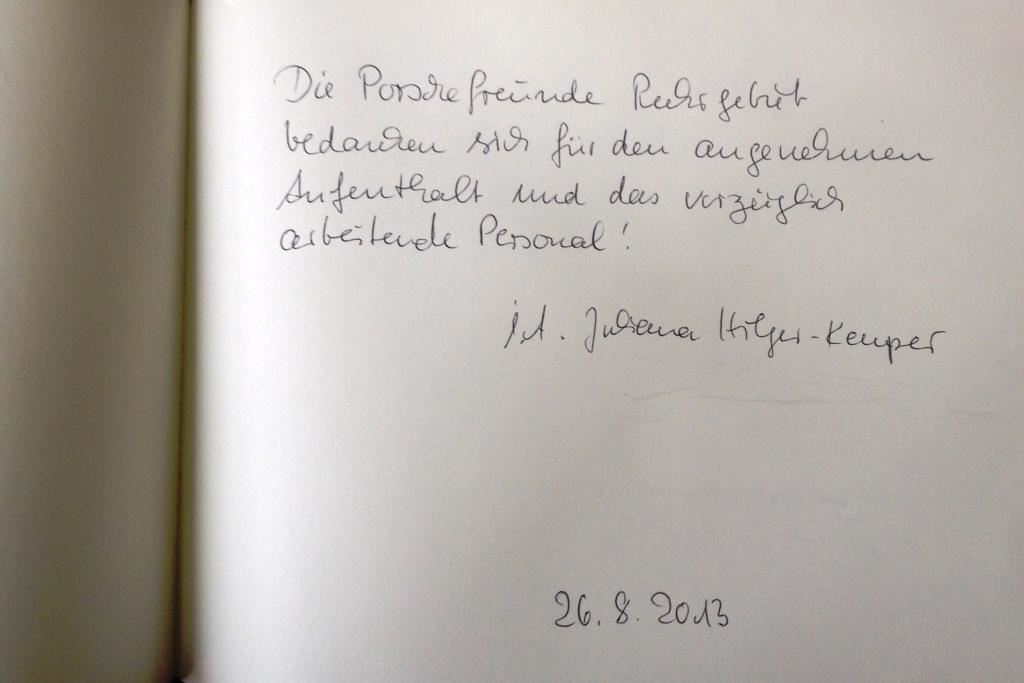 Die Porschefreunde Ruhrgebiet
bedanken sich für den angenehmen
Aufenthalt und das vorzüglich
arbeitende Personal!
i.A. Juliana Hilger-Kemper
26.8.2013